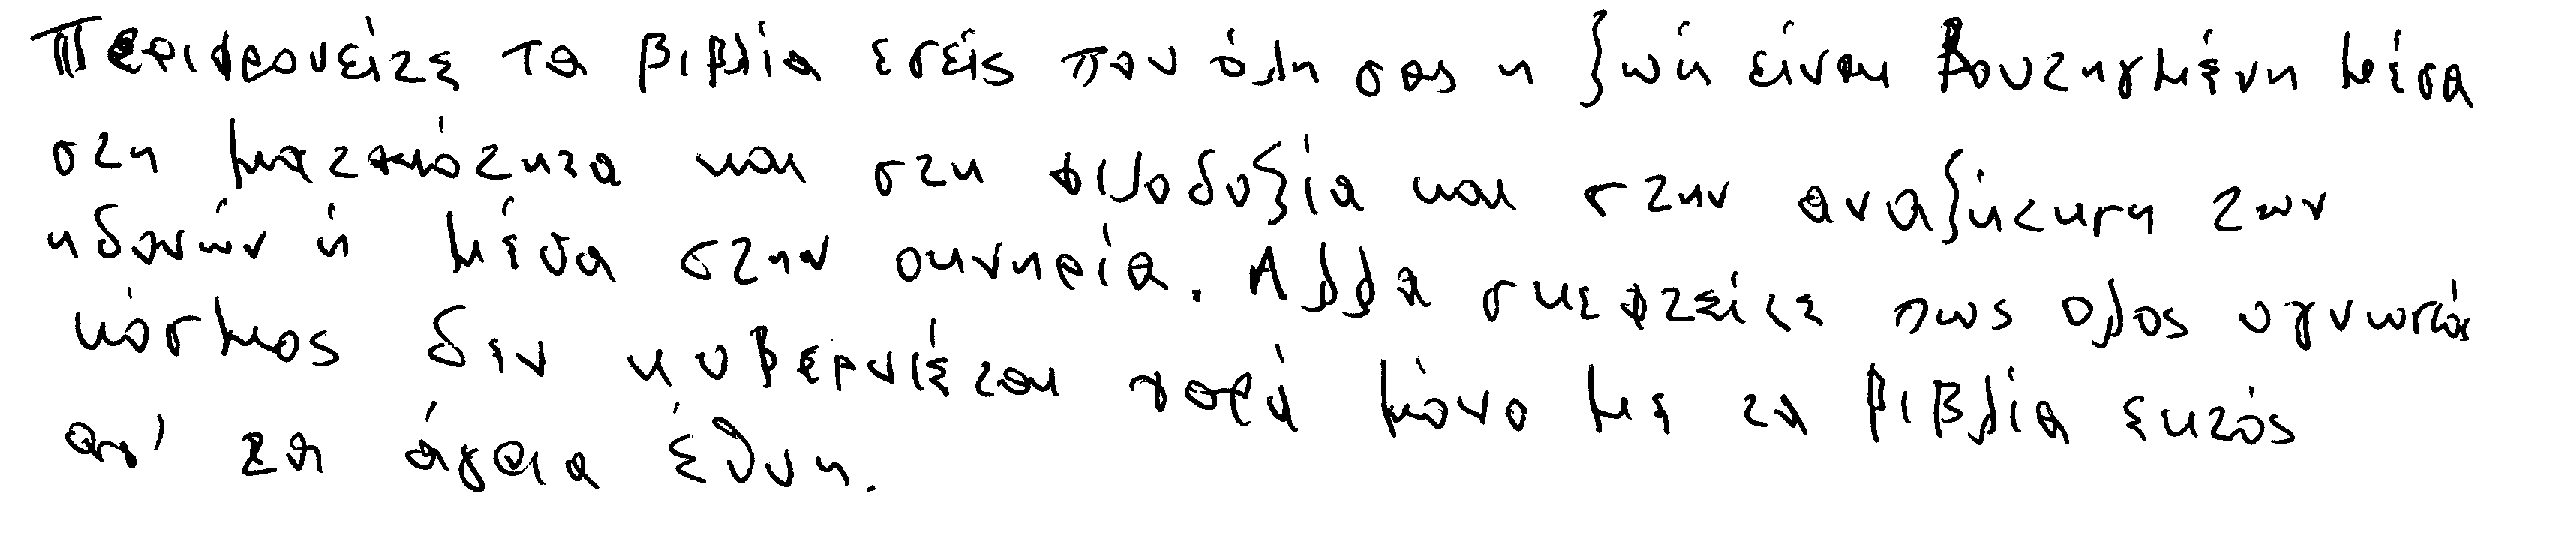 Περιφρονείτε τα βιβλία εσείς που όλη σας η ζωή είναι βουτηγμένη μέσα
στη ματαιότητα και στη φιλοδοξία και στην αναζήτηση των
ηδονών ή μέσα στην οκνηρία. Αλλά σκεφτείτε πως όλος ο γνωστός
κόσμος δεν κυβερνιέται παρά μόνο με τα βιβλία εκτός
απ' τα άγρια έθνη.